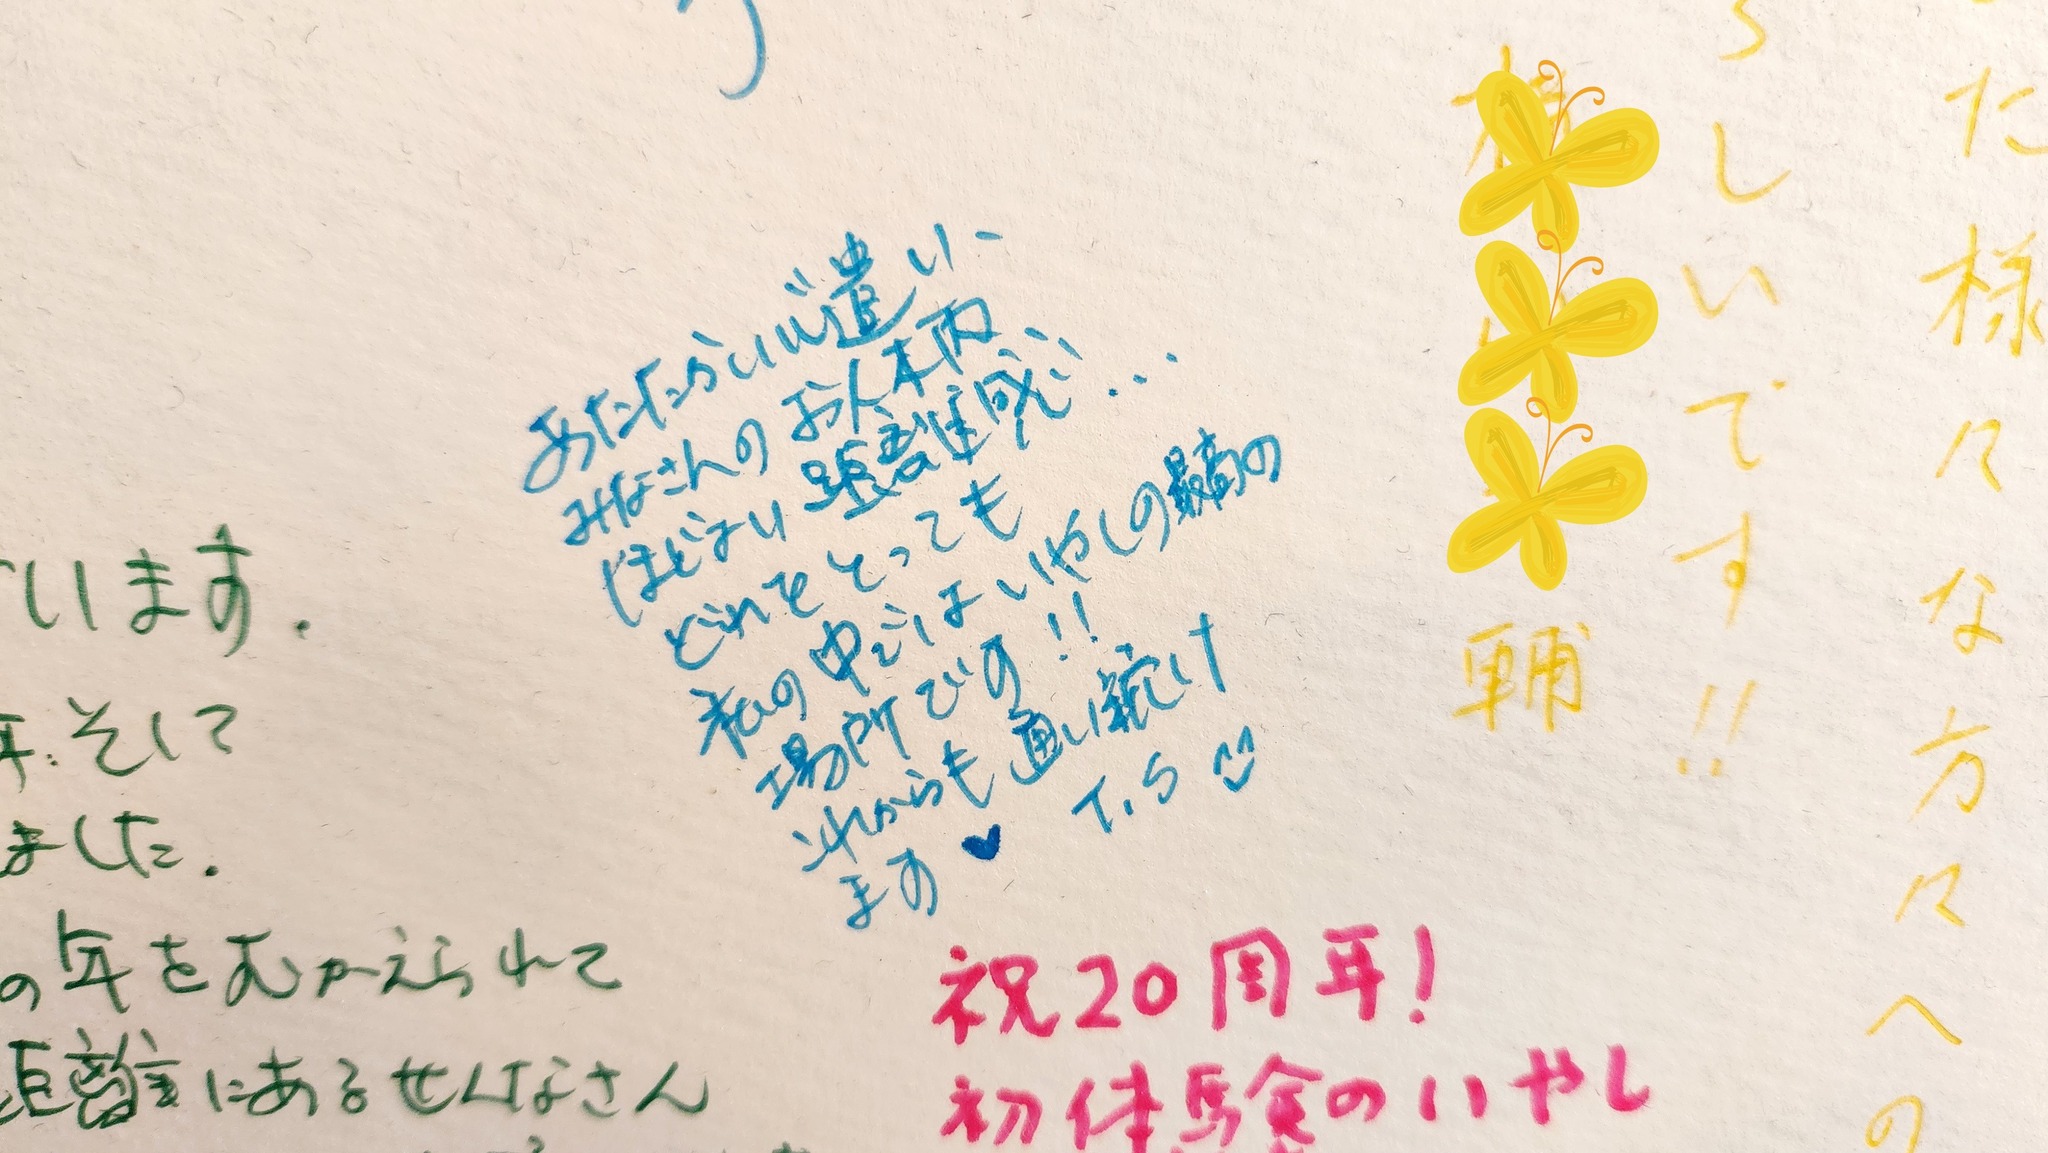 あたたらい心遣い
みなさんのお人柄
ほどよい距離感…
どれをとっても
私の中ではいやしの最高の
場所です!!
これからも通い続け
ます♥ T.S
祝20周年!
初体験のいやし
ています.
年.そして
ました.
の年をむかえられて
距離にあるせんなさん
た様々な方々への
らしいです!!
輔